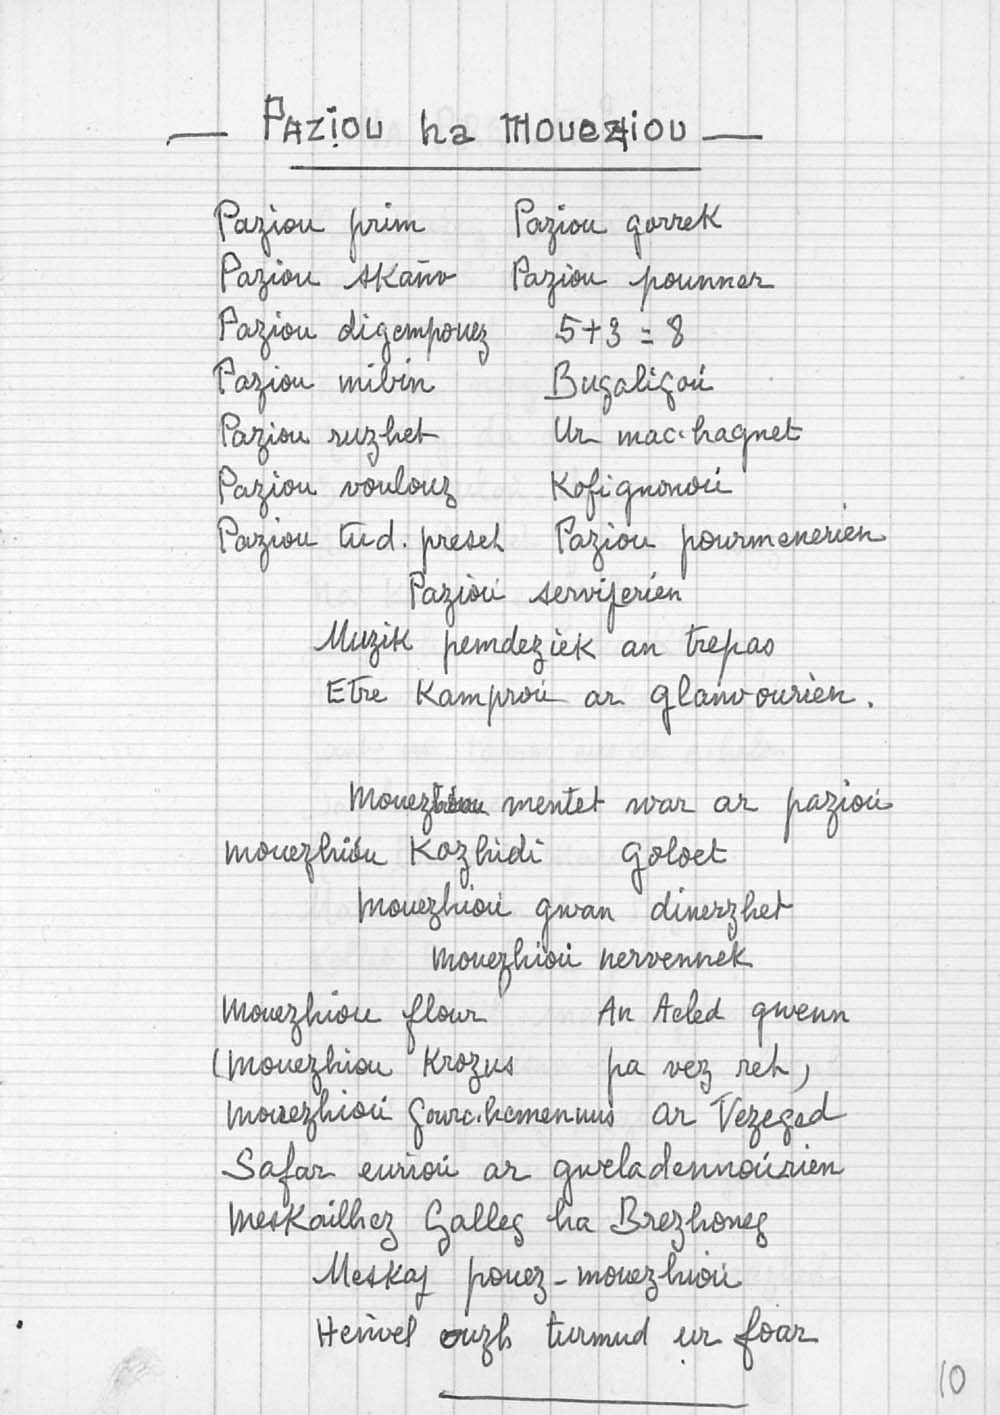 — Paziou ha Moueziou —
Paziou prim Paziou gorrek
Paziou skañv Paziou pounner
Paziou digempouez 5+3 = 8
Paziou mibin Bugaligoù
Paziou ruzhet Ur mac'hagnet
Paziou voulouz Kofignonoù
Paziou tud. preset Paziou pourmenerien
Pazioù servijerien
Muzik pemdeziek an trepas
Etre Kamproù ar glanvourien.
Mouezhiou mentet war ar pazioù
Mouezhioù Kozhidi Goloet
Mouezhioù gwan dinerzhet
Mouezhioù nervennek
Mouezhiou flour An Aeled gwenn
(Mouezhiou Krozus pa vez ret)
Mouezhioù Gourc'hemennus ar Vezeged
Safar eurioù ar gweladennoùrien
Meskailhez Galleg ha Brezhoneg
Meskaj pouez-mouezhioù
Heñvel ouzh turmud ur foar
10